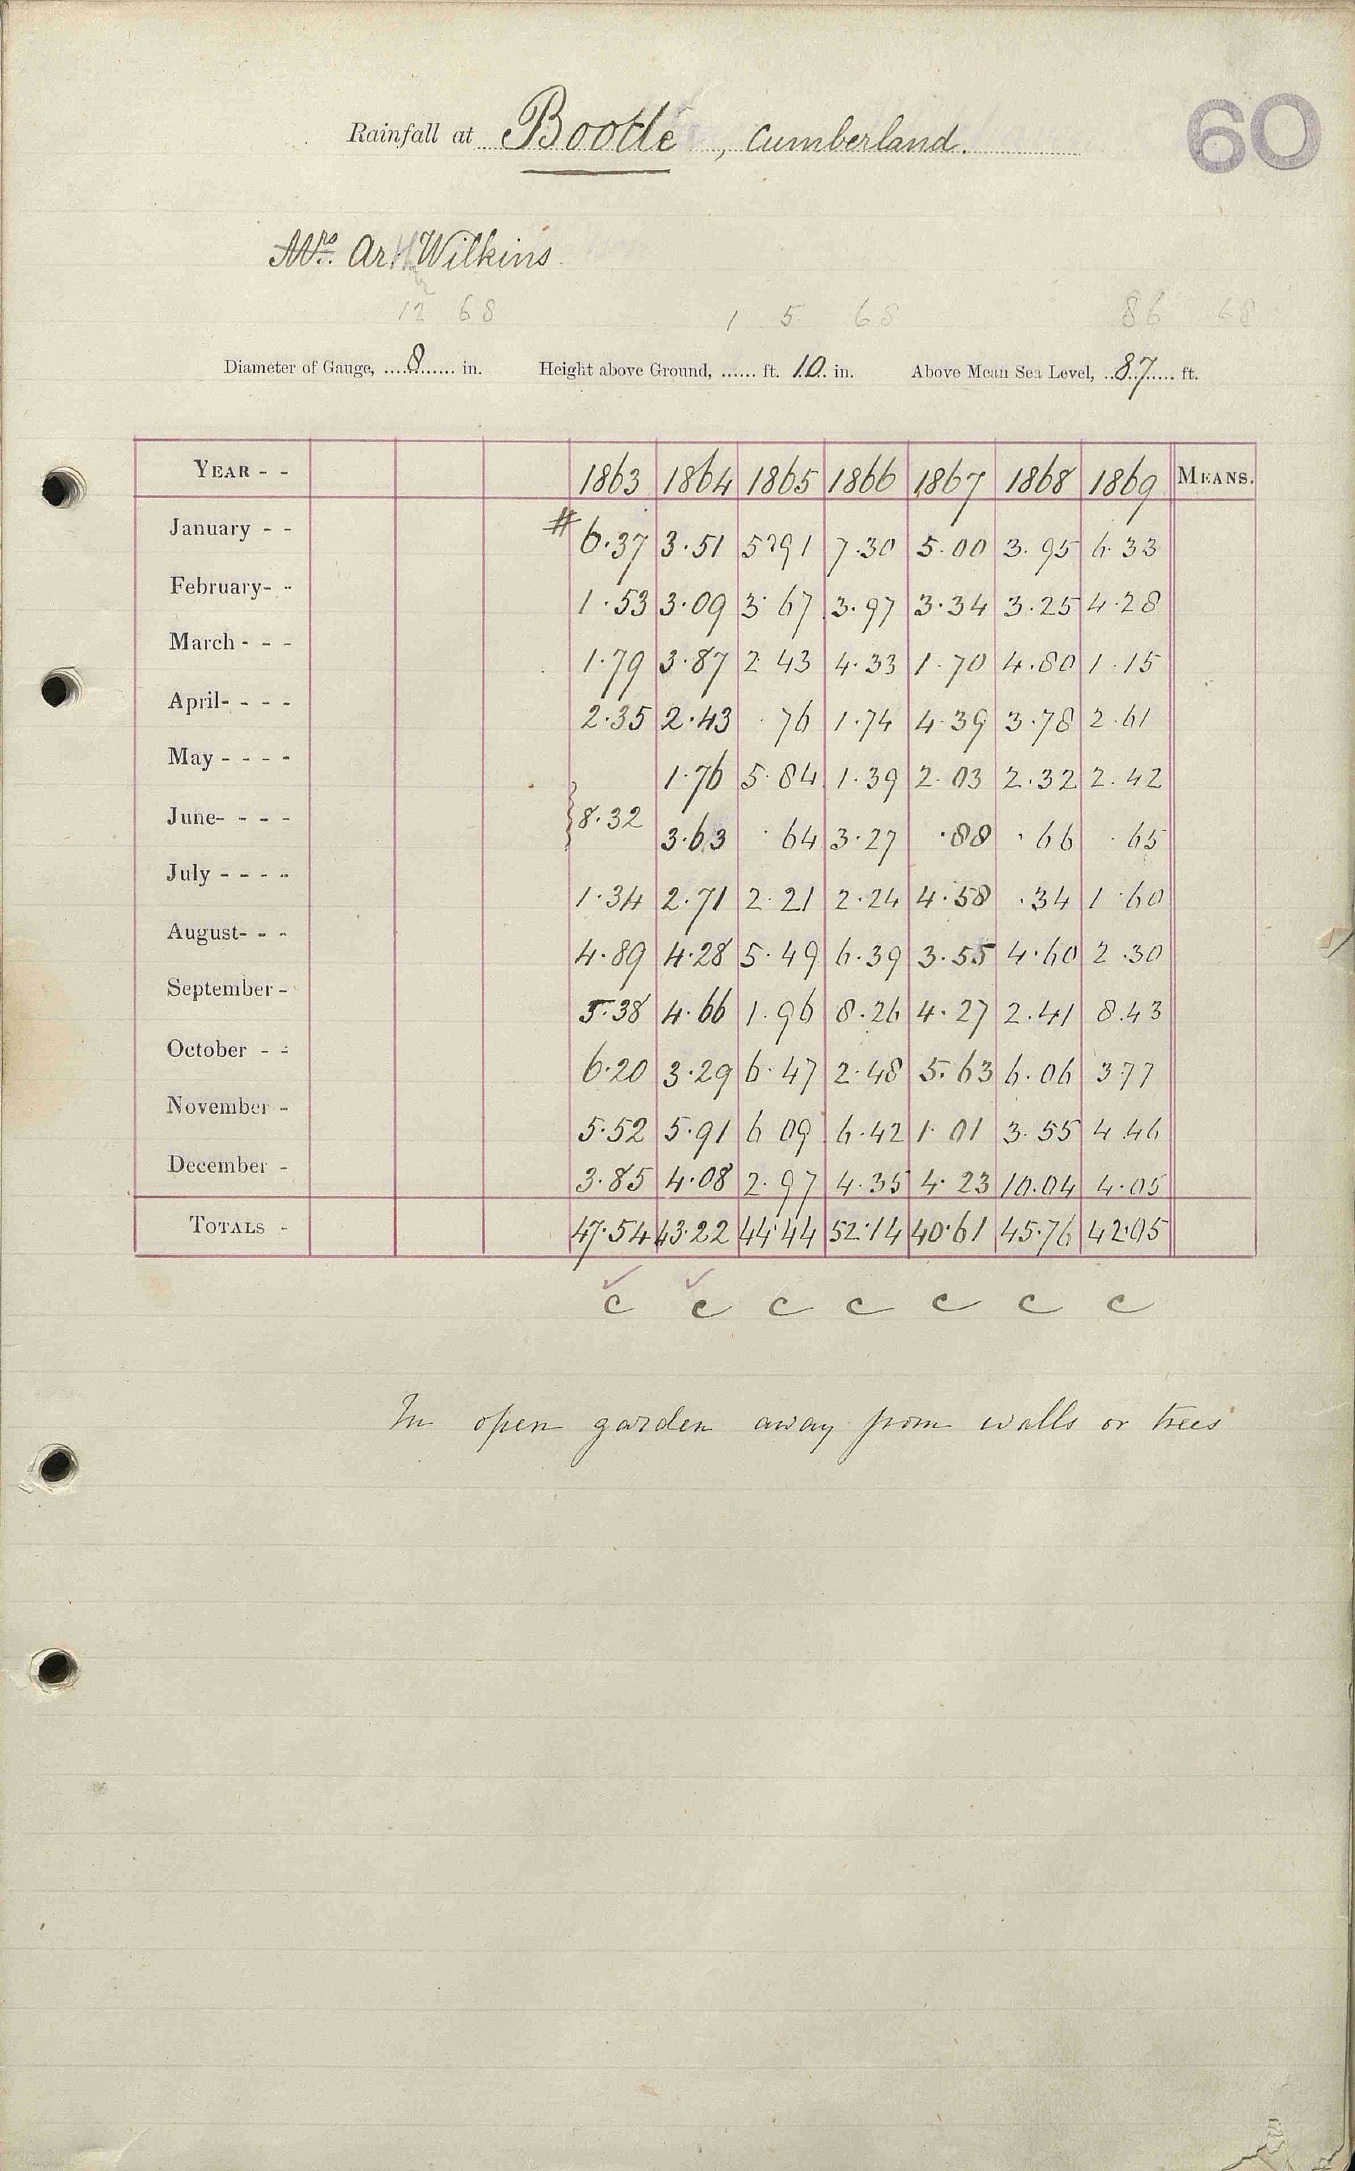 60
Rainfall at Bootle, Cumberland.
Mrs. Arthur Wilkins
12 68 1 5 68 86 68
Diameter of Gauge, 8 in. Height above Ground, ft. 10 in. Above Mean Sea Level, 87 ft.
YEAR - - 1863 1864 1865 1866 1867 1868 1869 MEANS.
January - - # 6.37 3.51 5.91 7.30 5.00 3.95 6.33
February- - 1.53 3.09 3.67 3.97 3.34 3.25 4.28
March - - - 1.79 3.87 2.43 4.33 1.70 4.80 1.15
April- - - - 2.35 2.43 .76 1.74 4.39 3.78 2.61
May - - - - 1.76 5.84 1.39 2.03 2.32 2.42
June- - - - } 8.32 3.63 .64 3.27 .88 .66 .65
July - - - - 1.34 2.71 2.21 2.24 4.58 .34 1.60
August- - - 4.89 4.28 5.49 6.39 3.55 4.60 2.30
September - 5.38 4.66 1.96 8.26 4.27 2.41 8.43
October - - 6.20 3.29 6.47 2.48 5.63 6.06 3.77
November - 5.52 5.91 6 09 6.42 1.01 3.55 4.46
December - 3.85 4.08 2.97 4.35 4.23 10.04 4.05
TOTALS - 47.54 43.22 44.44 52.14 40.61 45.76 42.05
c c c c c c c
In open garden away from walls or trees